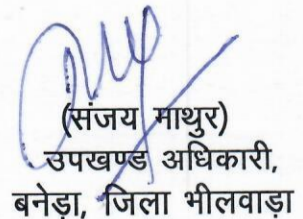 (संजय माथुर)
उपखण्ड अधिकारी,
बनेड़ा, जिला भीलवाड़ा